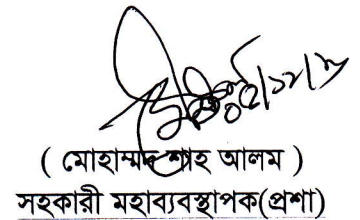 ( মোহাম্মদ শাহ আলম )
সহকারী মহাব্যবস্থাপক(প্রশা)